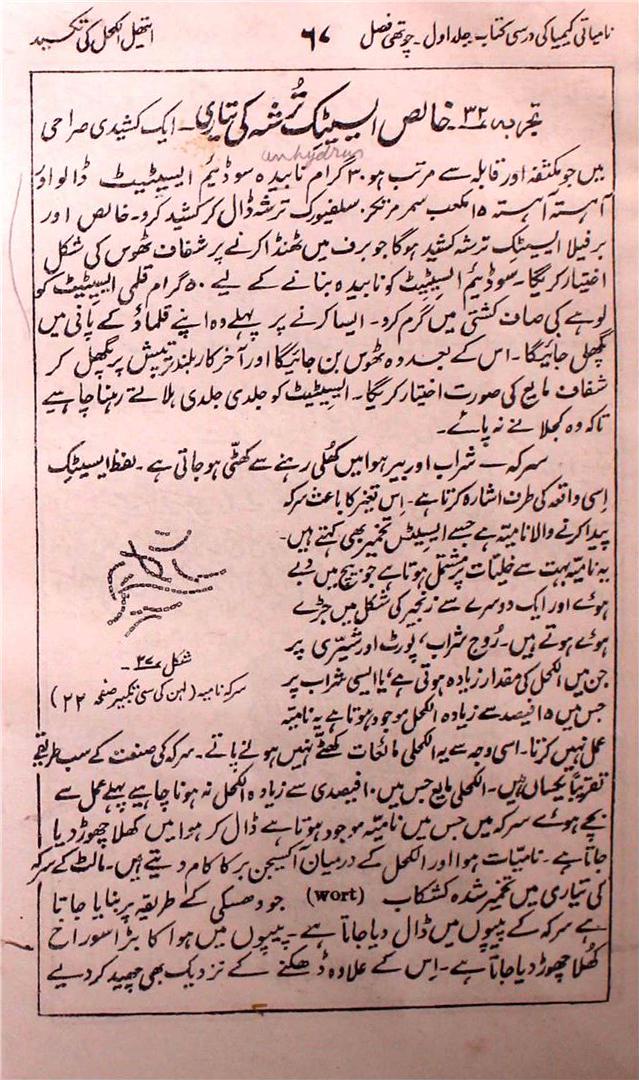 نامیاتی کیمیا کی درسی کتاب۔ جلد اول۔ چوتھی فصل ۶۷ ایتھیل الکحل کی تکسید
تجربہ ۳۲۔ خالص ایسیٹِک تُرشہ کی تیاری۔ ایک کشیدی صراحی
anhydrus
میں جو مکثفہ اور قابلہ سے مرتب ہو ۳۰ گرام نابیدہ سوڈیئم ایسیٹیٹ ڈالو اور
آہستہ آہستہ ۱۵ مکعب سمر مرتکز سلفیورک ترشہ ڈال کر کشید کرو۔ خالص اور
برفیلا ایسیٹِک ترشہ کشید ہوگا جو برف میں ٹھنڈا کرنے پر شفاف ٹھوس کی شکل
اختیار کریگا۔ سوڈیئم ایسیٹیٹ کو نابیدہ بنانے کے لیے ۵۰ گرام قلمی ایسیٹیٹ کو
لوہے کی صاف کشتی میں گرم کرو۔ ایسا کرنے پر پہلے وہ اپنے قلماؤ کے پانی میں
پگھل جائیگا۔ اس کے بعد وہ ٹھوس بن جائیگا اور آخر کار بلند تر تپش پر پگھل کر
شفاف مایع کی صورت اختیار کریگا۔ ایسیٹیٹ کو جلدی جلدی ہلاتے رہنا چاہیے
تاکہ وہ کجلانے نہ پائے۔
سرکہ — شراب اور بیر ہوا میں کھُلی رہنے سے کھٹّی ہو جاتی ہے۔ لفظ ایسیٹِک
اِسی واقعہ کی طرف اشارہ کرتا ہے۔ اِس تغیّر کا باعث سرکہ
پیدا کرنے والا نامیّہ ہے جسے ایسیٹِس تخمیر بھی کہتے ہیں۔
یہ نامیّہ بہت سے خلیّات پر مشتمل ہوتا ہے جو بیچ میں دبے
ہوئے اور ایک دوسرے سے زنجیر کی شکل میں جڑے
ہوئے ہوتے ہیں۔ رُوحِ شراب، پورٹ اور شیری پر
جن میں الکحل کی مقدار زیادہ ہوتی ہے، یا ایسی شراب پر
جس میں ۱۵ فیصد سے زیادہ الکحل موجود ہوتا ہے یہ نامیّہ
شکل ۳۷۔
سرکہ نامیہ (لہن کی سی تکبیر صفحہ ۲۲)
عمل نہیں کرتا۔ اسی وجہ سے یہ الکحلی مائعات کھٹّے نہیں ہونے پاتے۔ سرکہ کی صنعت کے سب طریقے
تقریباً یکساں ہیں۔ الکحلی مایع جس میں ۱۰ فیصدی سے زیادہ الکحل نہ ہونا چاہیے پہلے عمل سے
بچے ہوئے سرکہ میں جس میں نامیّہ موجود ہوتا ہے ڈال کر ہوا میں کھلا چھوڑ دیا
جاتا ہے۔ نامیّات ہوا اور الکحل کے درمیان آکسیجن بر کا کام دیتے ہیں۔ مالٹ کے سرکہ
کی تیاری میں تخمیر شدہ کشکاب (wort) جو وھسکی کے طریقہ پر بنایا جاتا
ہے سرکہ کے پیپوں میں ڈال دیا جاتا ہے۔ پیپوں میں ہوا کا بڑا سوراخ
کھُلا چھوڑ دیا جاتا ہے۔ اِس کے علاوہ ڈھکنے کے نزدیک بھی چھید کر دیے